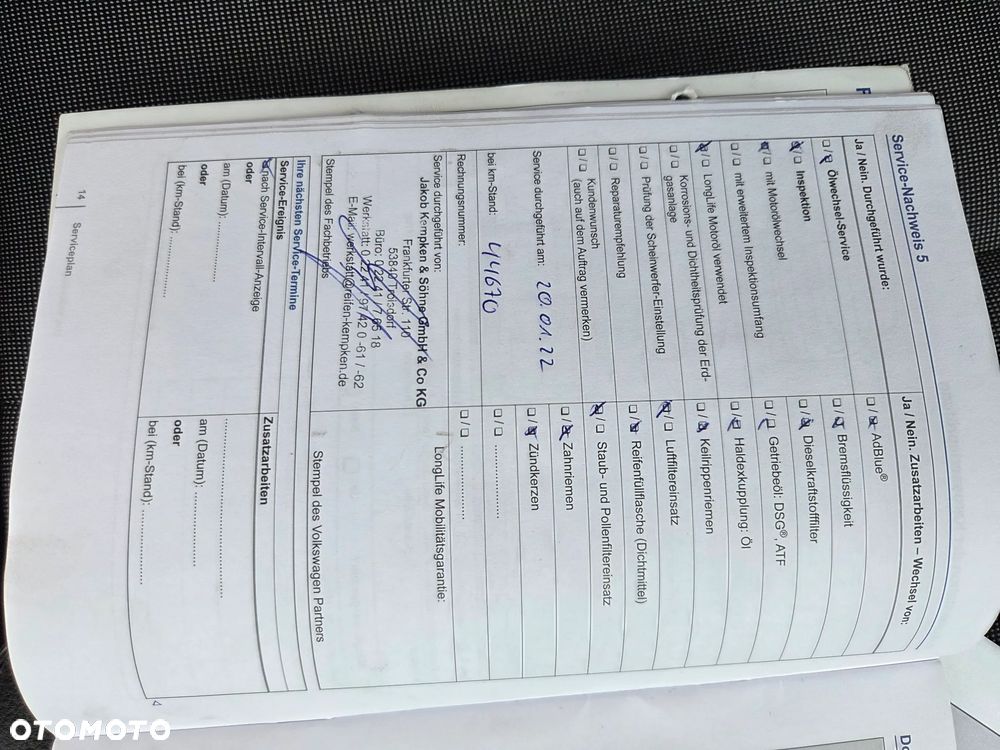 Service-Nachweis 5
Ja / Nein. Durchgeführt wurde:
☐ / ☒ Ölwechsel-Service
☒ / ☐ Inspektion
☒ / ☐ mit Motorölwechsel
☐ / ☐ mit erweitertem Inspektionsumfang
☒ / ☐ LongLife Motoröl verwendet
☐ / ☐ Korrosions- und Dichtheitsprüfung der Erd-
gasanlage
☐ / ☐ Prüfung der Scheinwerfer-Einstellung
☐ / ☐ Reparaturempfehlung
☐ / ☐ Kundenwunsch
(auch auf dem Auftrag vermerken)
Service durchgeführt am: 20.01.22
bei km-Stand: 44670
Rechnungsnummer:
Service durchgeführt von:
Jakob Kempken & Söhne GmbH & Co KG
Frankfurter Str. 110
53840 Troisdorf
E-Mail: werkstatt@reifen-kempken.de
Stempel des Fachbetriebs
Ja / Nein. Zusatzarbeiten – Wechsel von:
☐ / ☒ AdBlue®
☐ / ☒ Bremsflüssigkeit
☐ / ☒ Dieselkraftstofffilter
☐ / ☒ Getriebeöl: DSG®, ATF
☐ / ☒ Haldexkupplung: Öl
☐ / ☒ Keilrippenriemen
☒ / ☐ Luftfiltereinsatz
☐ / ☒ Reifenfüllflasche (Dichtmittel)
☒ / ☐ Staub- und Pollenfiltereinsatz
☐ / ☒ Zahnriemen
☐ / ☒ Zündkerzen
☐ / ☐ ................
☐ / ☐ ................
LongLife Mobilitätsgarantie:
Stempel des Volkswagen Partners
Ihre nächsten Service-Termine
Service-Ereignis
☒ nach Service-Intervall-Anzeige
oder
am (Datum): ................
oder
bei (km-Stand): ................
Zusatzarbeiten
................
am (Datum): ................
oder
bei (km-Stand): ................
14 Serviceplan
OTOMOTO